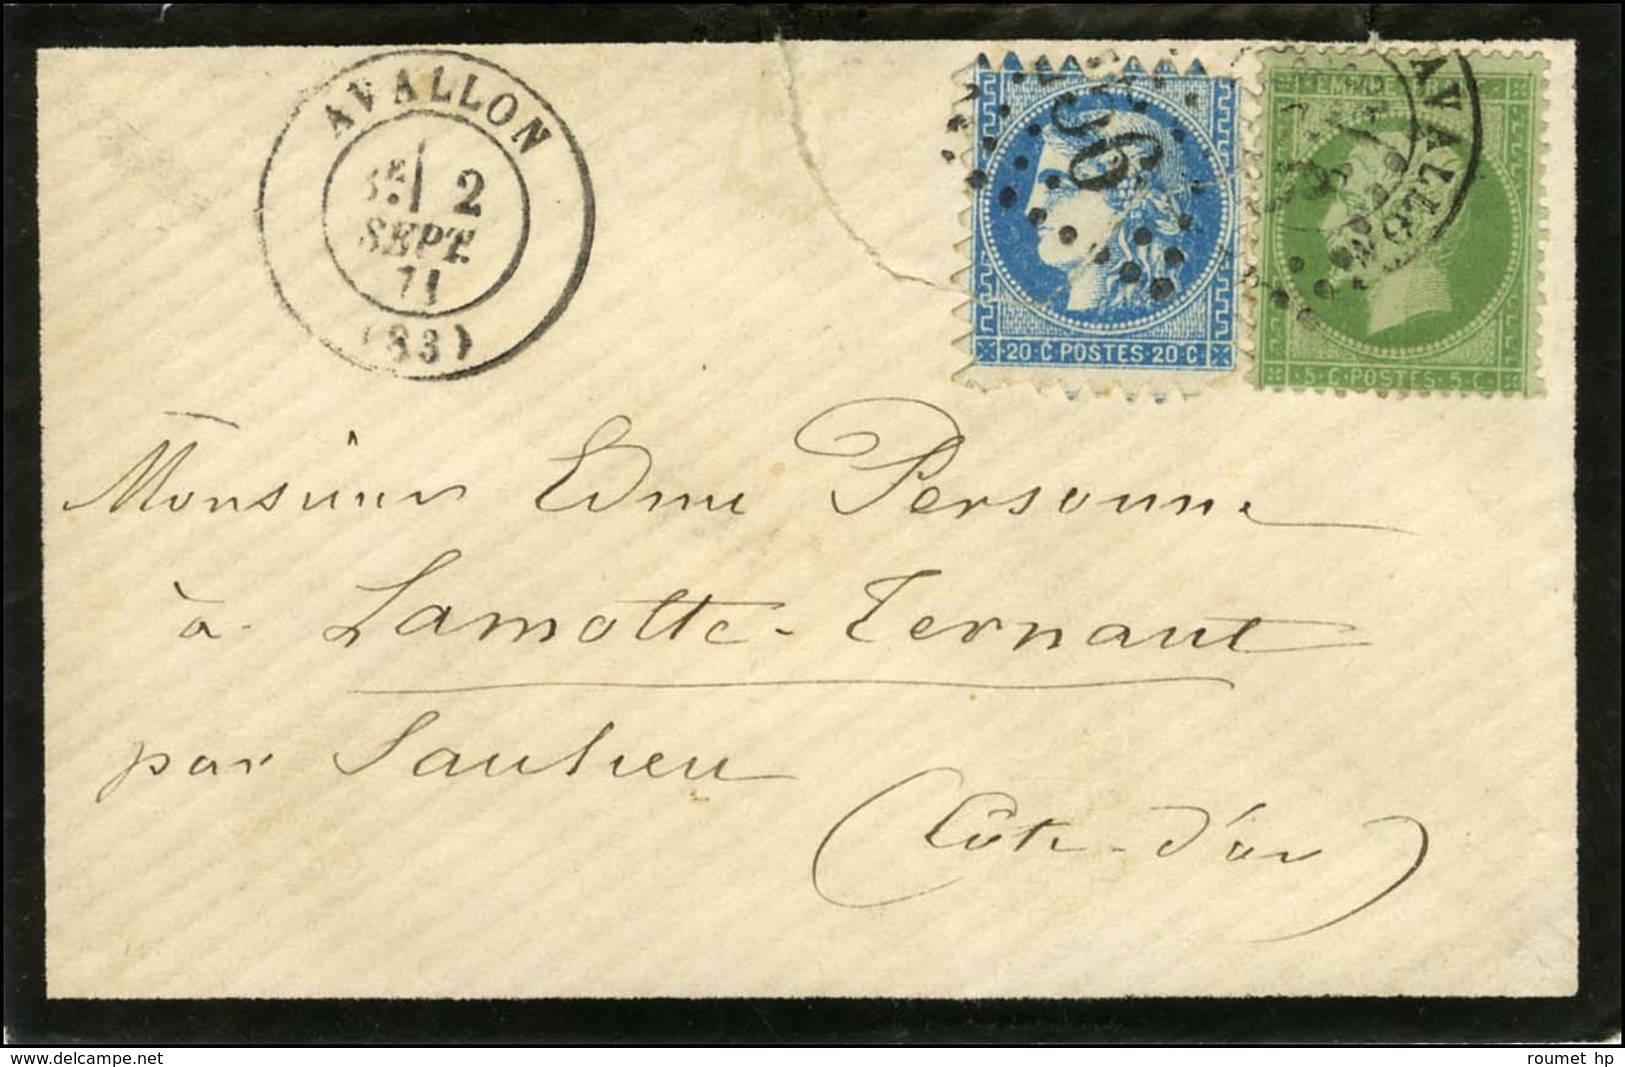 AVALLON
2
SEPT.
71
(83)
20·C·POSTES·20·C·
EMP
5·C·POSTES·5·C·
AVALLON
Monsieur Edme Personne
à Lamotte-Ternant
par Saulieu
(Côte-d'or)
delcampe.net
roumet hp